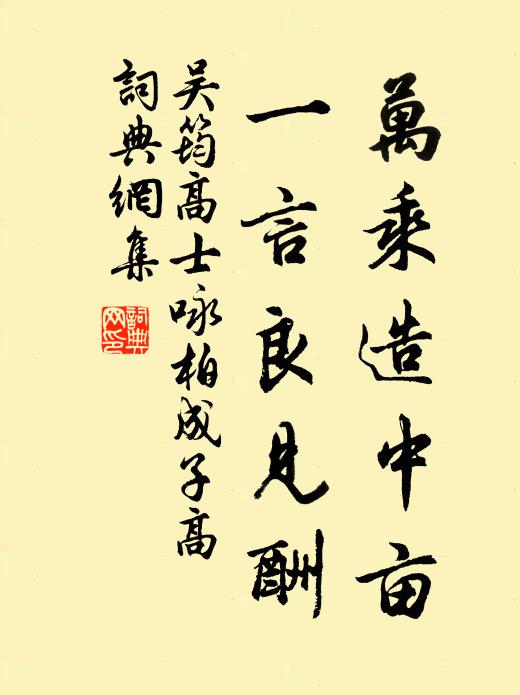 萬乘造中亩
一言良見酬
吴筠高士咏柏成子高
詞典網集
詞典網印